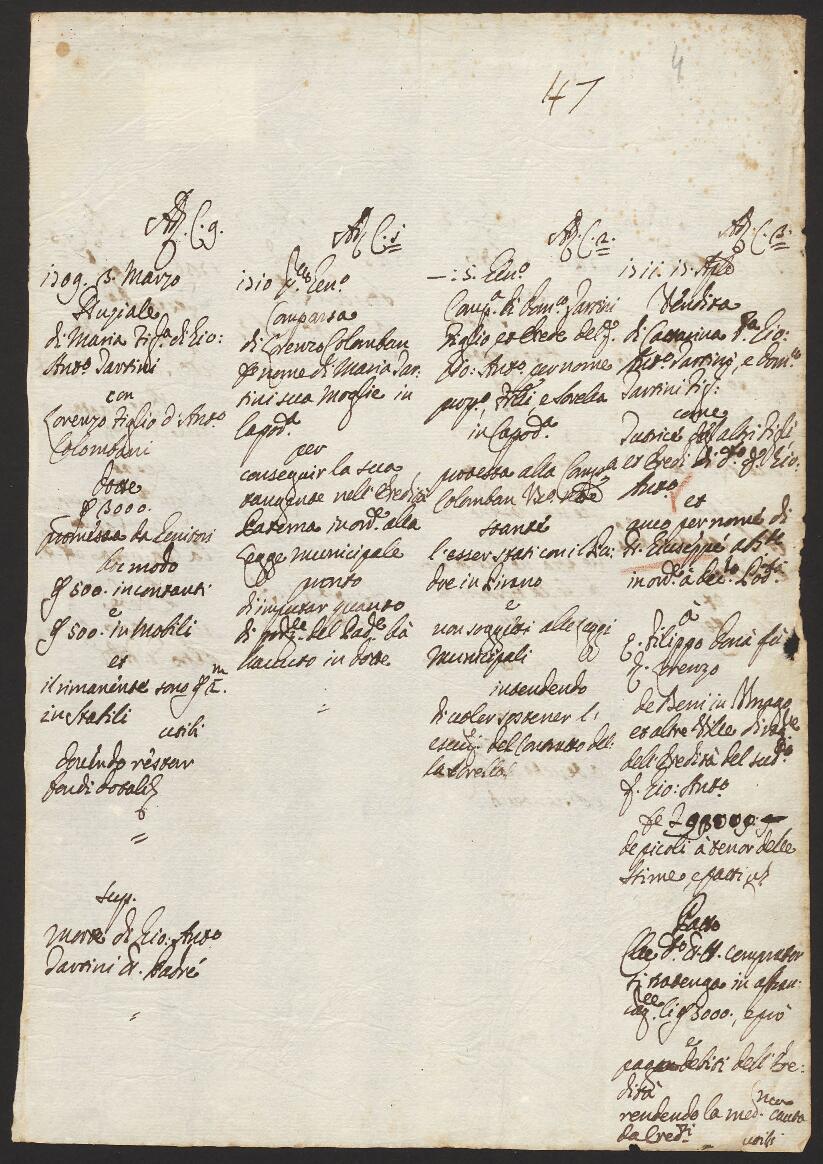 4
47
C. 9.
1709. 3. Marzo
Nuziale
di Maria Fig.a di Gio:
Ant.o Tartini
con
Lorenzo Figlio d'Anto
Colombani
Dote
3000.
promessa da Genitori
in modo
500. in contanti
e
500. in Mobili
et
il rimanente sono
in Stabili
dovendo restar
fondi dotali
morte di Gio: Anto
Tartini
C. 1.
1710
Comparsa
di Lorenzo Colomban
nome di Maria Tar:
tini sua Moglie in
Capod.a
per
conseguir la sua
tangente nell'Eredità
Paterna in ord.e alla
Legge municipale
pronto
d'imputar quanto
di del Pad.e hà
havuto in dote
C. 2.
15. Gen.o
Comp.a di Dom.co Tartini
Figlio et Erede del q.
Gio: Anto, cur nome
prop.o, Fr̃elli e Sorella
in Capod.a
protesta alla Comp.a
Colomban
stante
l'esser stati con il Pa:
dre in Pirano
e
non soggetti alle Leggi
Municipali
intendendo
di voler sostener l'
esecuz. del Contratto del:
la Sorella
C. 3.
1711. 17.
Vendita
di Cattarina Gio:
Anto Tartini, e Dom.co
Tartini Fig:
come
Tutrice dell'altri Figli
et Eredi di d.o q. Gio:
Anto
et
anco per nome di
Giuseppe
in ord.e à
à
Filippo Donà fù
q. Lorenzo
de Beni in Umago
et altre Ville di
dell'Eredità del sud.o
q. Gio: Anto
de picoli à tenor delle
Stime, e
Patto
Che d.o comprator
si trattenga in
li 3000., e più
e
pagar debiti dell'Ere:
dità
rendendo la med. cauta
da Cred.ri